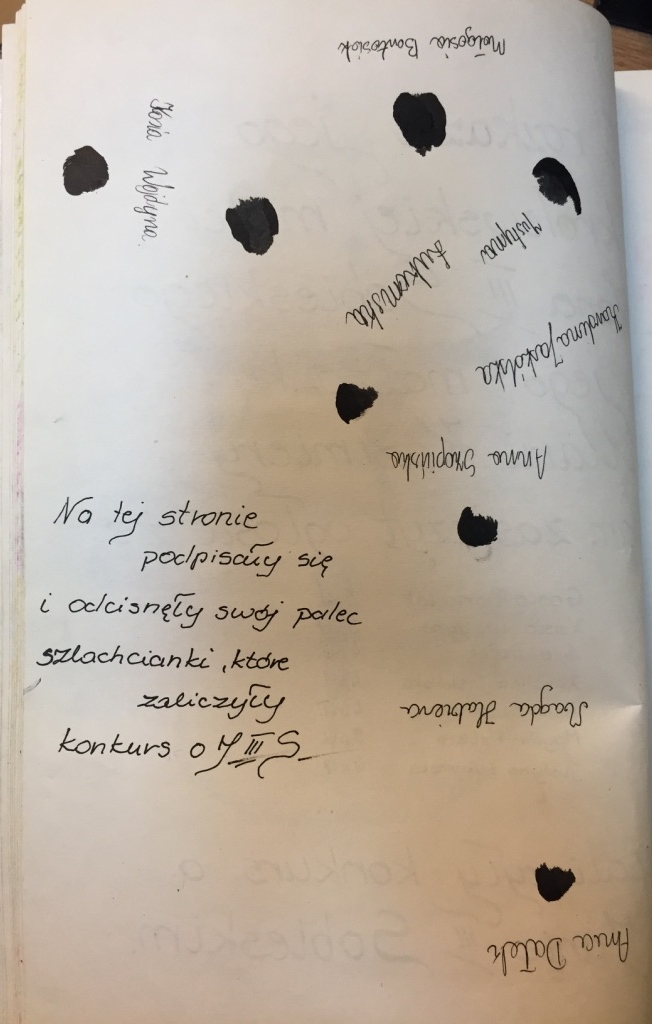 Małgosia Bartosiak
Kasia Wojdyna
Justyna
Łukomska
Karolina Jaskólska
Anna Skopińska
Na tej stronie
podpisały się
i odcisnęły swój palec
szlachcianki, które
zaliczyły
konkurs o J III S
Magda
Anna Dałek